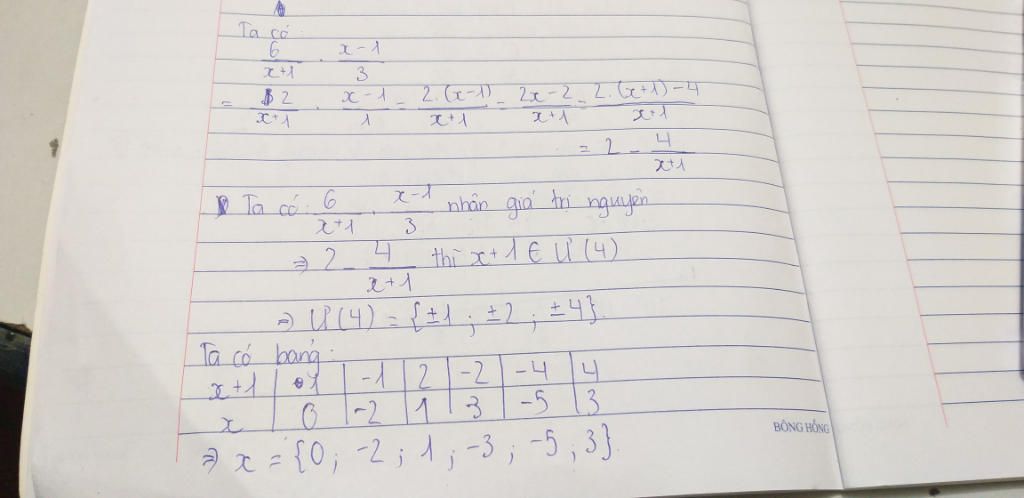 Ta có:
6/(x+1) . (x-1)/3
= 2/(x+1) . (x-1)/1 = 2.(x-1)/(x+1) = (2x-2)/(x+1) = (2.(x+1)-4)/(x+1)
= 2 - 4/(x+1)
Ta có: 6/(x+1) . (x-1)/3 nhận giá trị nguyên
⇒ 2 - 4/(x+1) thì x+1 ∈ Ư(4)
⇒ Ư(4) = {±1 ; ±2 ; ±4}.
Ta có bảng:
x+1 | 1 | -1 | 2 | -2 | -4 | 4
x | 0 | -2 | 1 | -3 | -5 | 3
BÔNG HỒNG
⇒ x = {0 ; -2 ; 1 ; -3 ; -5 ; 3}.